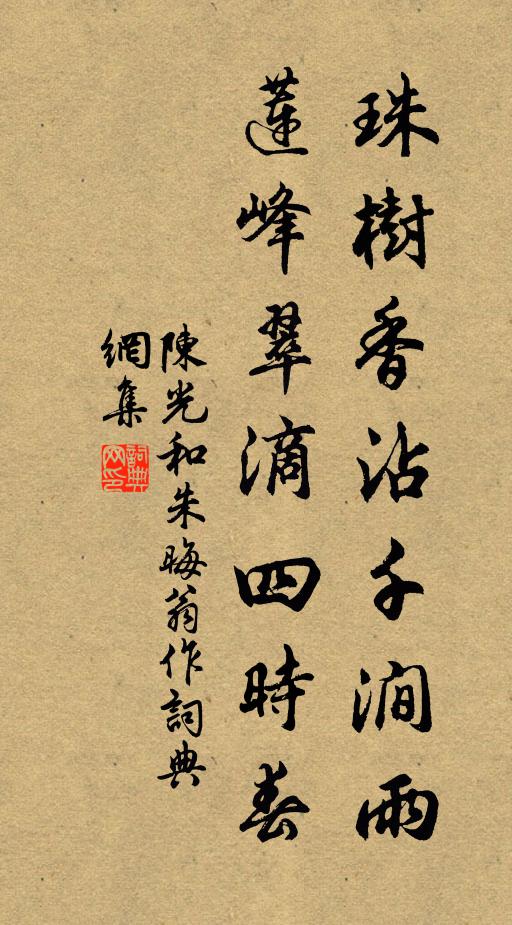 珠樹香沾千澗雨
蓮峰翠滴四時春
陳光和朱晦翁作詞典
網集
詞典網印